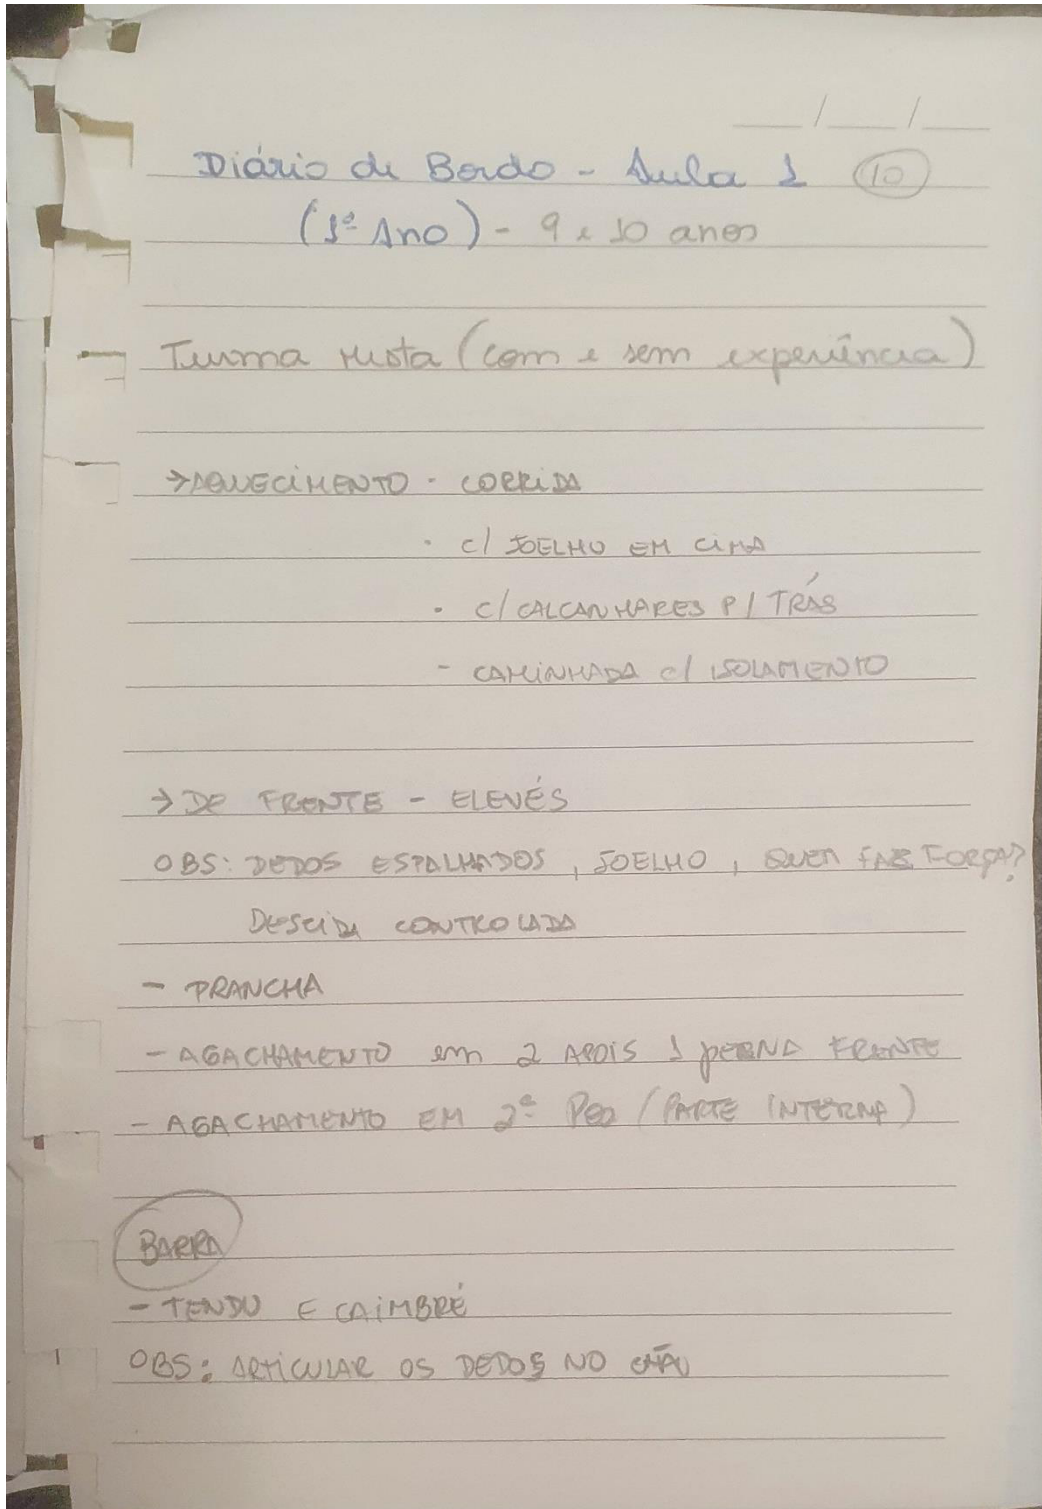 __/__/__
Diário de Bordo - Aula 1 (10)
(1º Ano) - 9 e 10 anos
Turma Mista (com e sem experiência)
→ AQUECIMENTO - CORRIDA
- C/ JOELHO EM CIMA
- C/ CALCANHARES P/ TRÁS
- CAMINHADA C/ ISOLAMENTO
→ DE FRENTE - ELEVÉS
OBS: DEDOS ESPALHADOS, JOELHO, QUEM FAZ FORÇA?
DESCIDA CONTROLADA
- PRANCHA
- AGACHAMENTO em 2 APOIS 1 PERNA FRENTE
- AGACHAMENTO EM 2ª POS (PARTE INTERNA)
BARRA
- TENDU E CAIMBRÉ
OBS: ARTICULAR OS DEDOS NO CHÃO